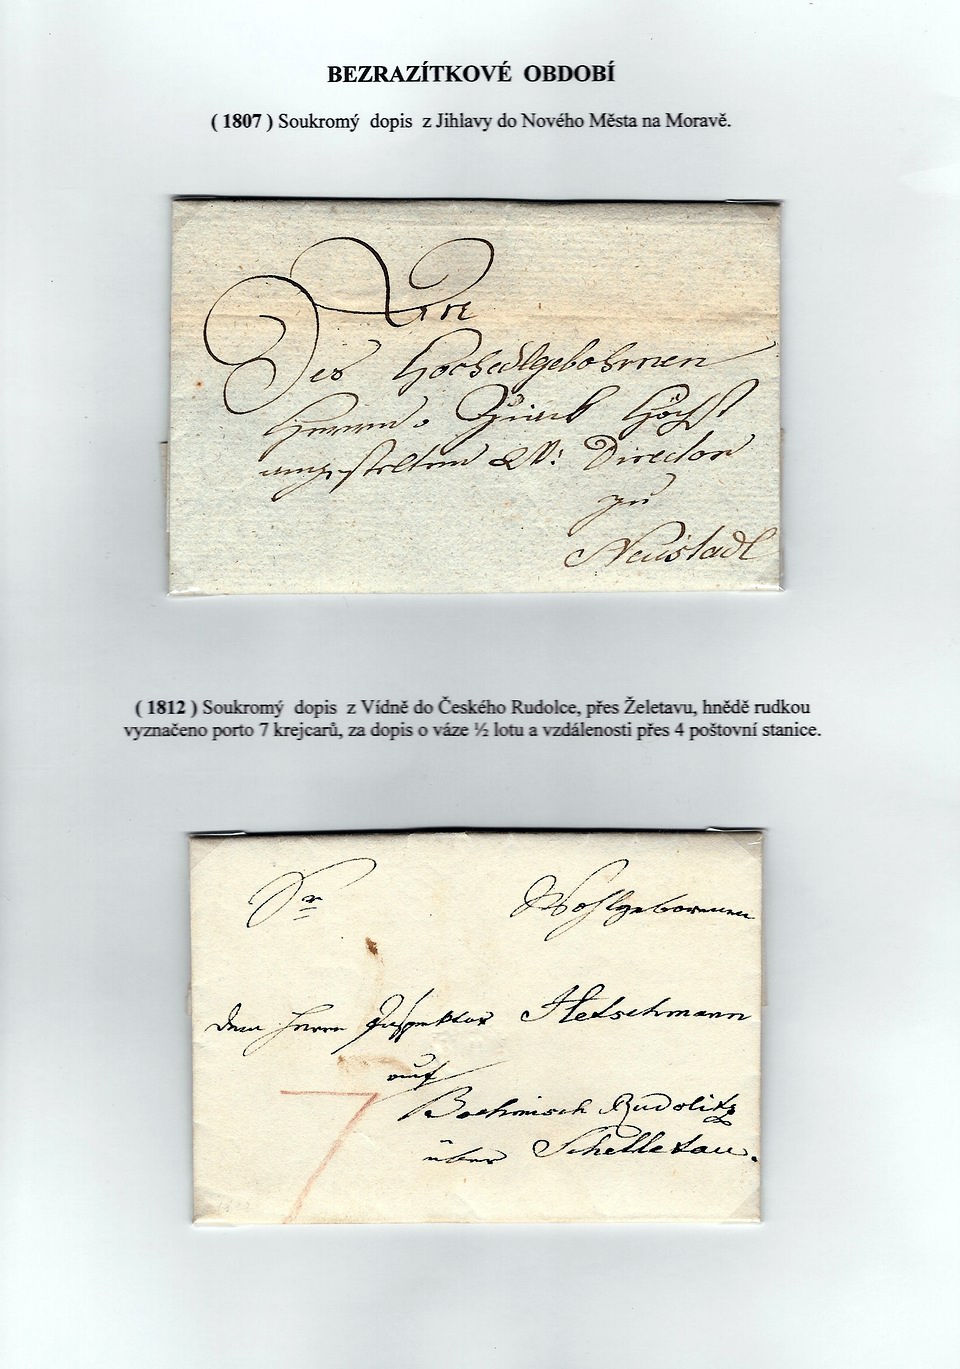 BEZRAZÍTKOVÉ OBDOBÍ
( 1807 ) Soukromý dopis z Jihlavy do Nového Města na Moravě.
Des Hochedlgebohrnen
Herrn Höchst
Director
zu
Neustadl
( 1812 ) Soukromý dopis z Vídně do Českého Rudolce, přes Želetavu, hnědě rudkou
vyznačeno porto 7 krejcarů, za dopis o váze ½ lotu a vzdálenosti přes 4 poštovní stanice.
Sr Wohlgebornen
dem Herrn Inspektor Hetschmann
auf
7
Boehmisch Rudolitz
über Schelletau.